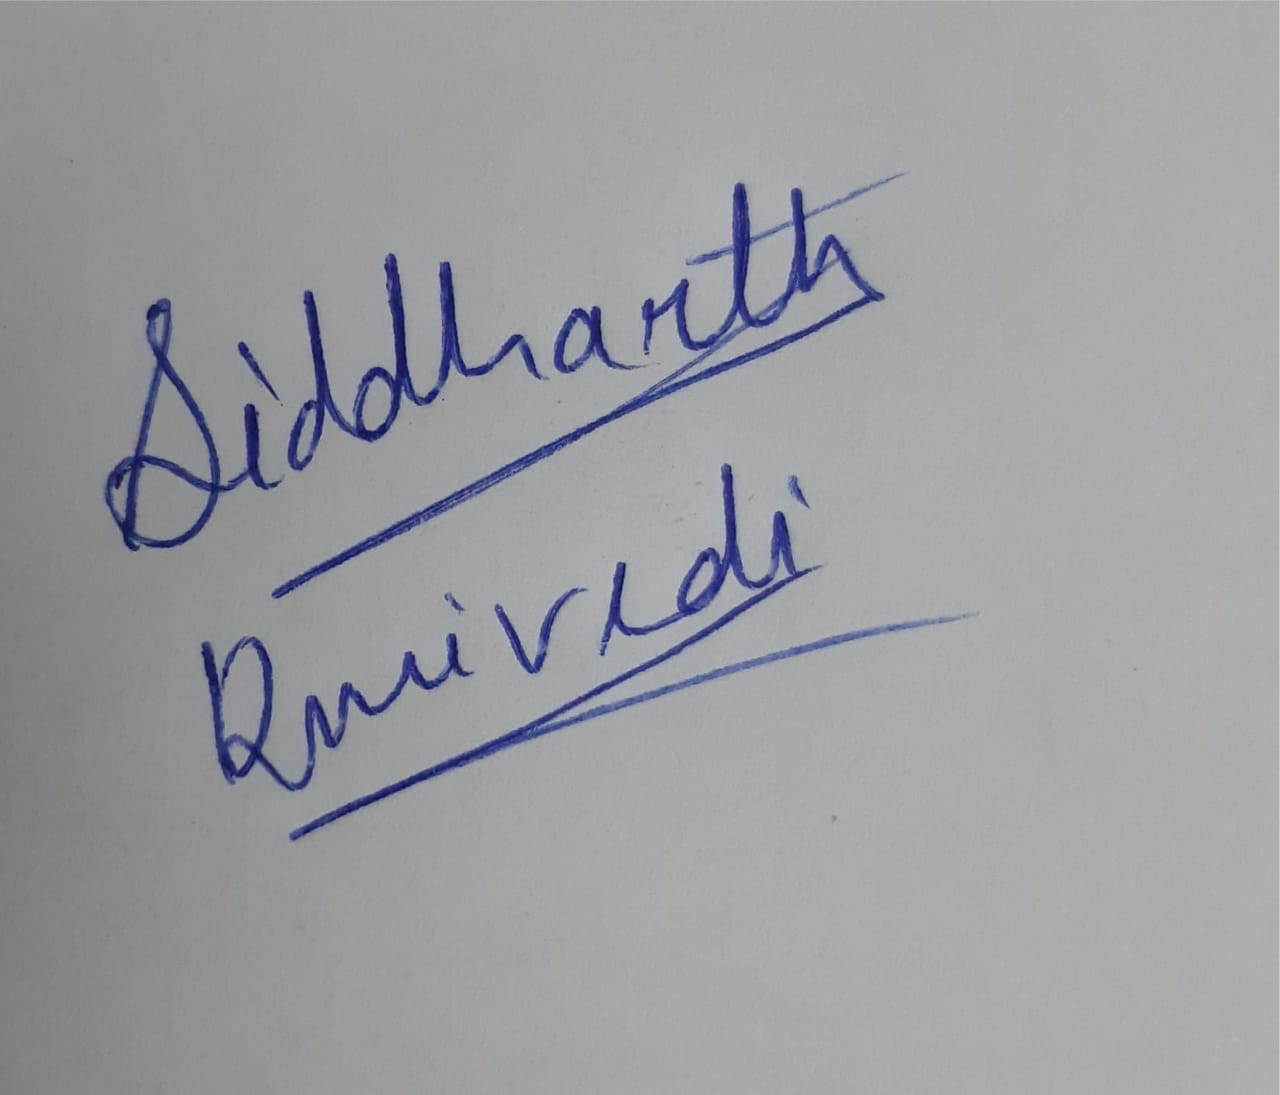 Siddharth
Dwivedi